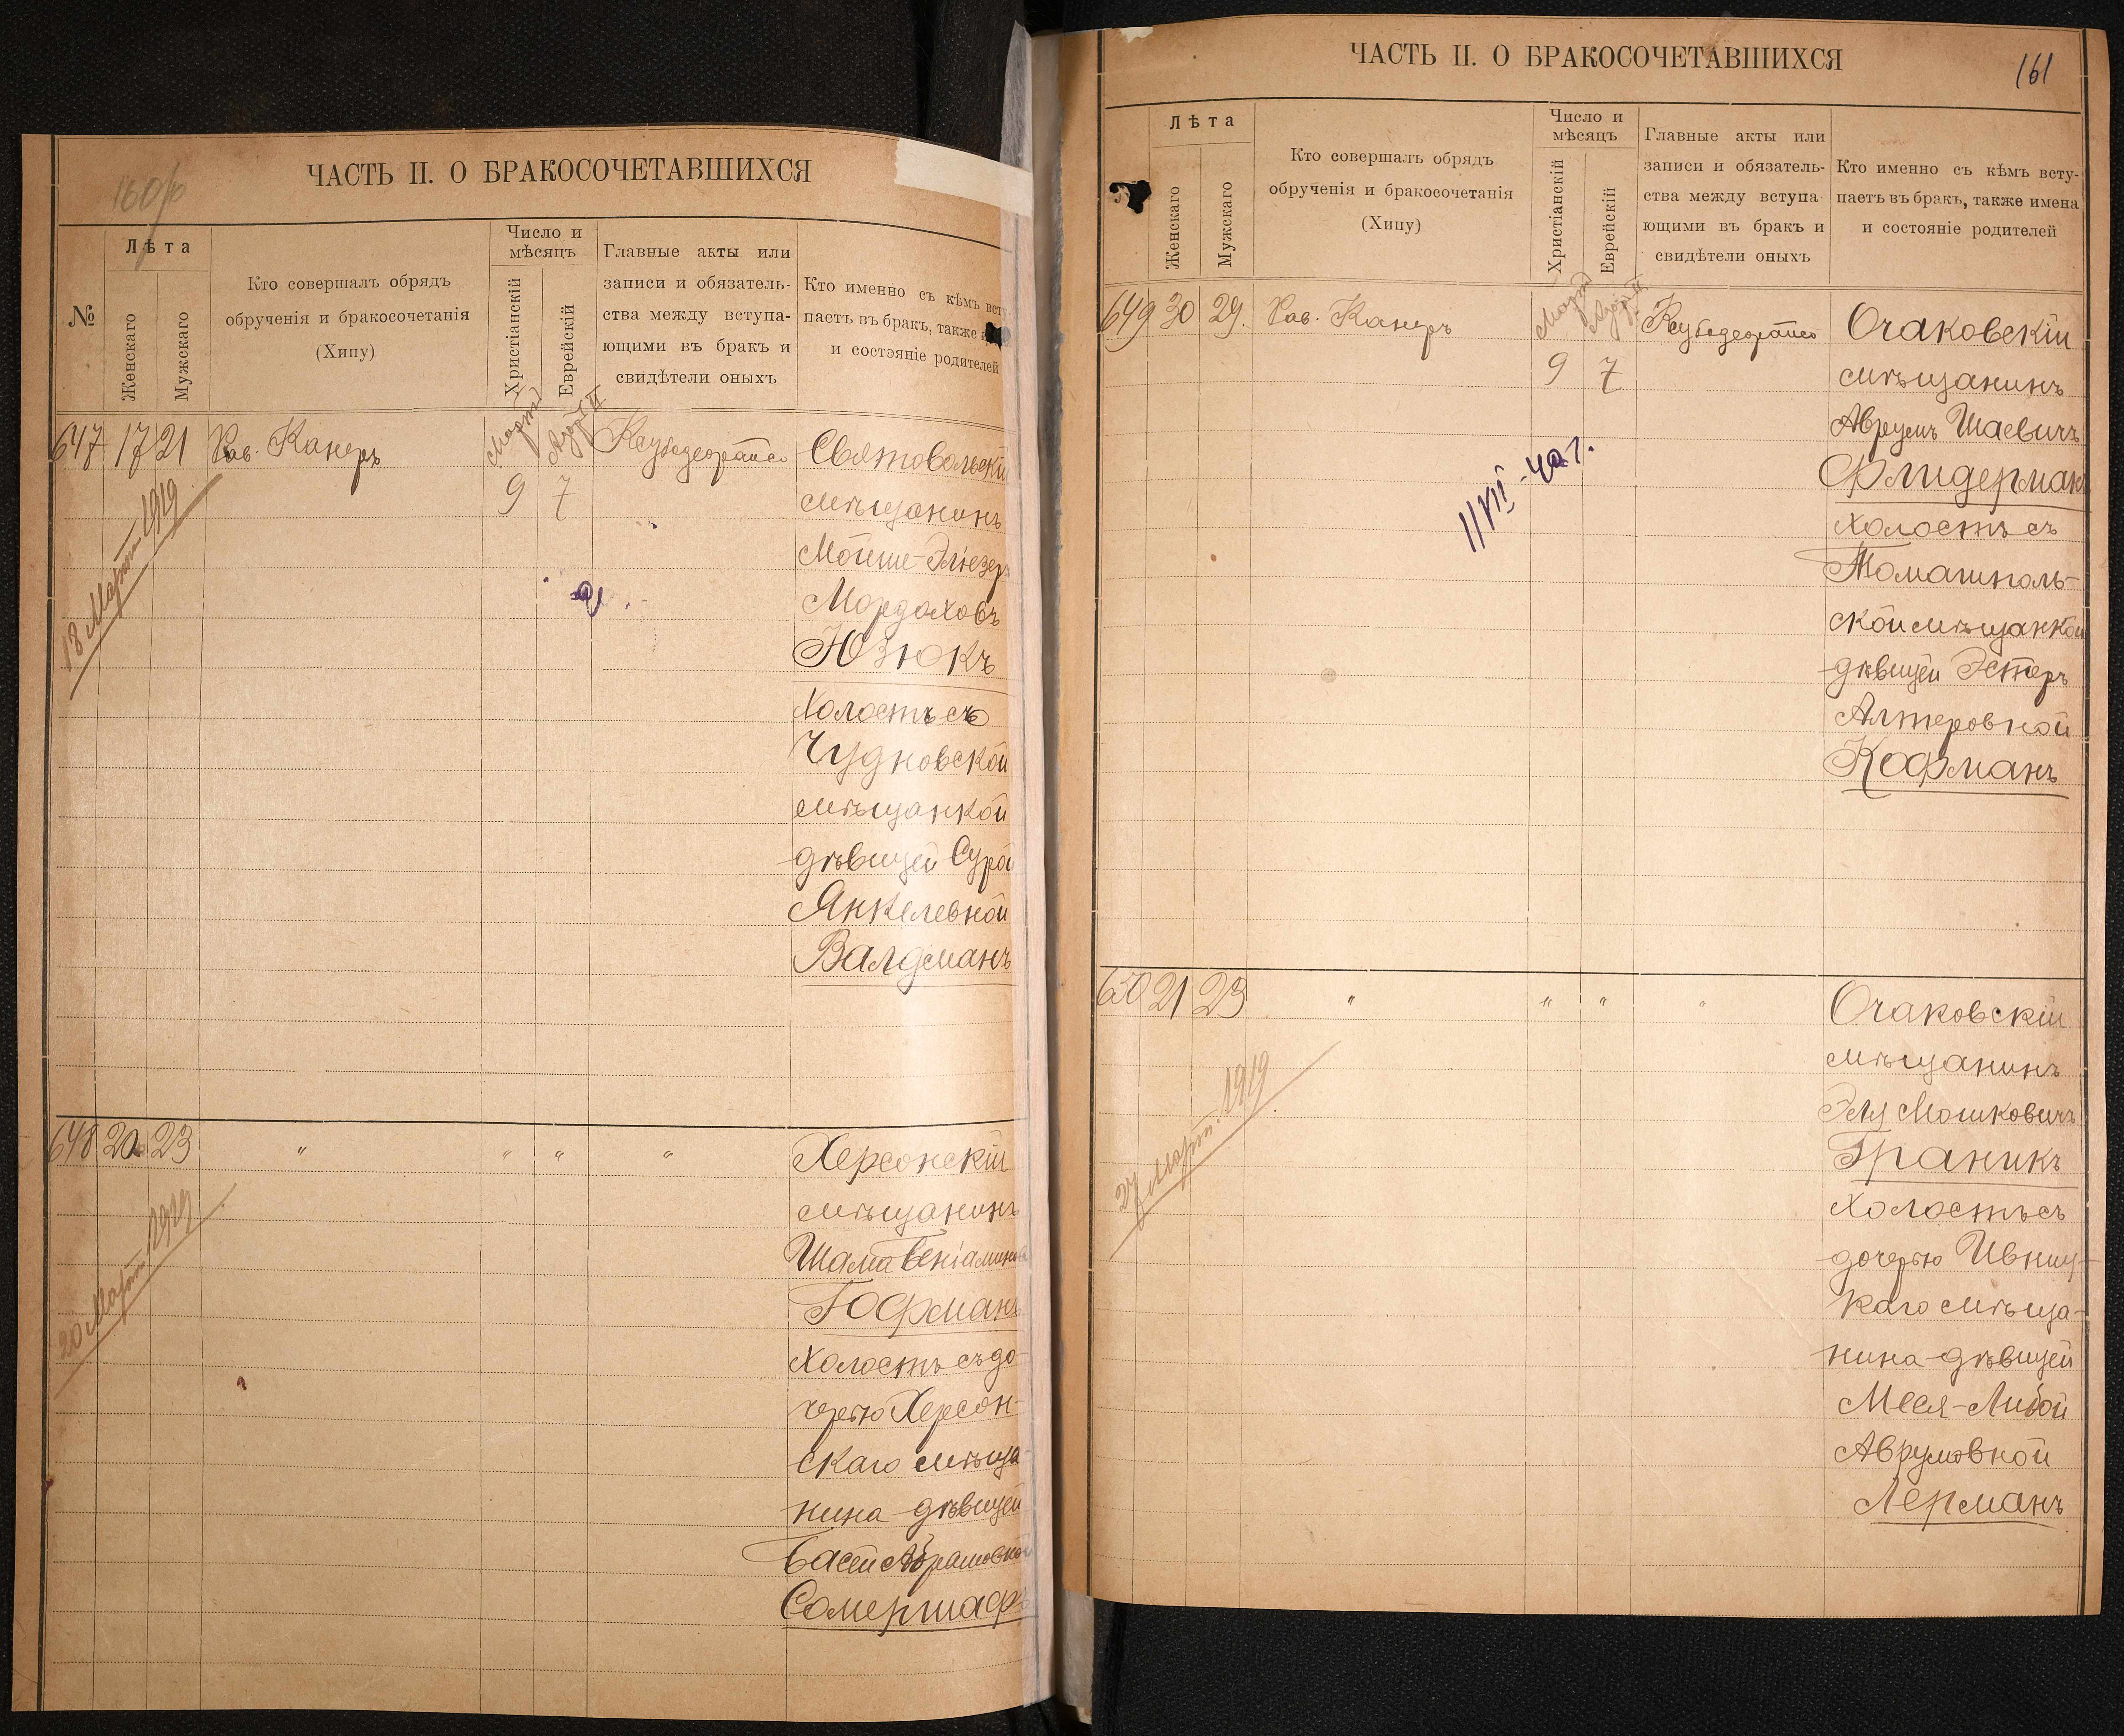 160/об
ЧАСТЬ II. О БРАКОСОЧЕТАВШИХСЯ
№
Лѣта
Женскаго
Мужскаго
Кто совершалъ обрядъ
обрученія и бракосочетанія
(Хипу)
Число и
мѣсяцъ
Христіанскій
Еврейскій
Главные акты или
записи и обязатель-
ства между вступа-
ющими въ бракъ и
свидѣтели оныхъ
Кто именно съ кѣмъ вст
паетъ въ бракъ, также
и состэяніе родителей
647 17 21 Рав. Канеръ
Мартъ
9
Адоръ II
7
Святовольскій
мѣщанинъ
Мойше-Эліезеръ
Мордоховъ
Юзюкъ
холостъ съ
Чудновской
мѣщанкой
дѣвицей Сурой
Янкелевной
Валдманъ
18 Мартъ 1919
648 20 23 " " " "
Херсонскій
мѣщанинъ
Шама Беніаминовъ
Гофманъ
холостъ съ до-
черью Херсон-
скаго мѣща-
нина дѣвицей
Басей Абрамовной
Сомершафъ
20 Мартъ 1919
ЧАСТЬ II. О БРАКОСОЧЕТАВШИХСЯ
161
Лѣта
Женскаго
Мужскаго
Кто совершалъ обрядъ
обрученія и бракосочетанія
(Хипу)
Число и
мѣсяцъ
Христіанскій
Еврейскій
Главные акты или
записи и обязатель-
ства между вступа
ющими въ бракъ и
свидѣтели оныхъ
Кто именно съ кѣмъ всту-
паетъ въ бракъ, также имена
и состояніе родителей
649 30 29. Рав. Канеръ
Мартъ
9
Адоръ II
7
Очаковскій
мѣщанинъ
Аврумъ Шаевичъ
Флидерманъ
холостъ съ
Томашполь-
ской мѣщанкой
дѣвицей Эстеръ
Алтеровной
Кофманъ
11/VII-40г.
650 21 23 " " " "
Очаковскій
мѣщанинъ
Эля Мошковичъ
Граникъ
холостъ съ
дочерью Ивниц-
каго мѣща-
нина дѣвицей
Меся-Либой
Аврумовной
Лерманъ
27 Мартъ 1919